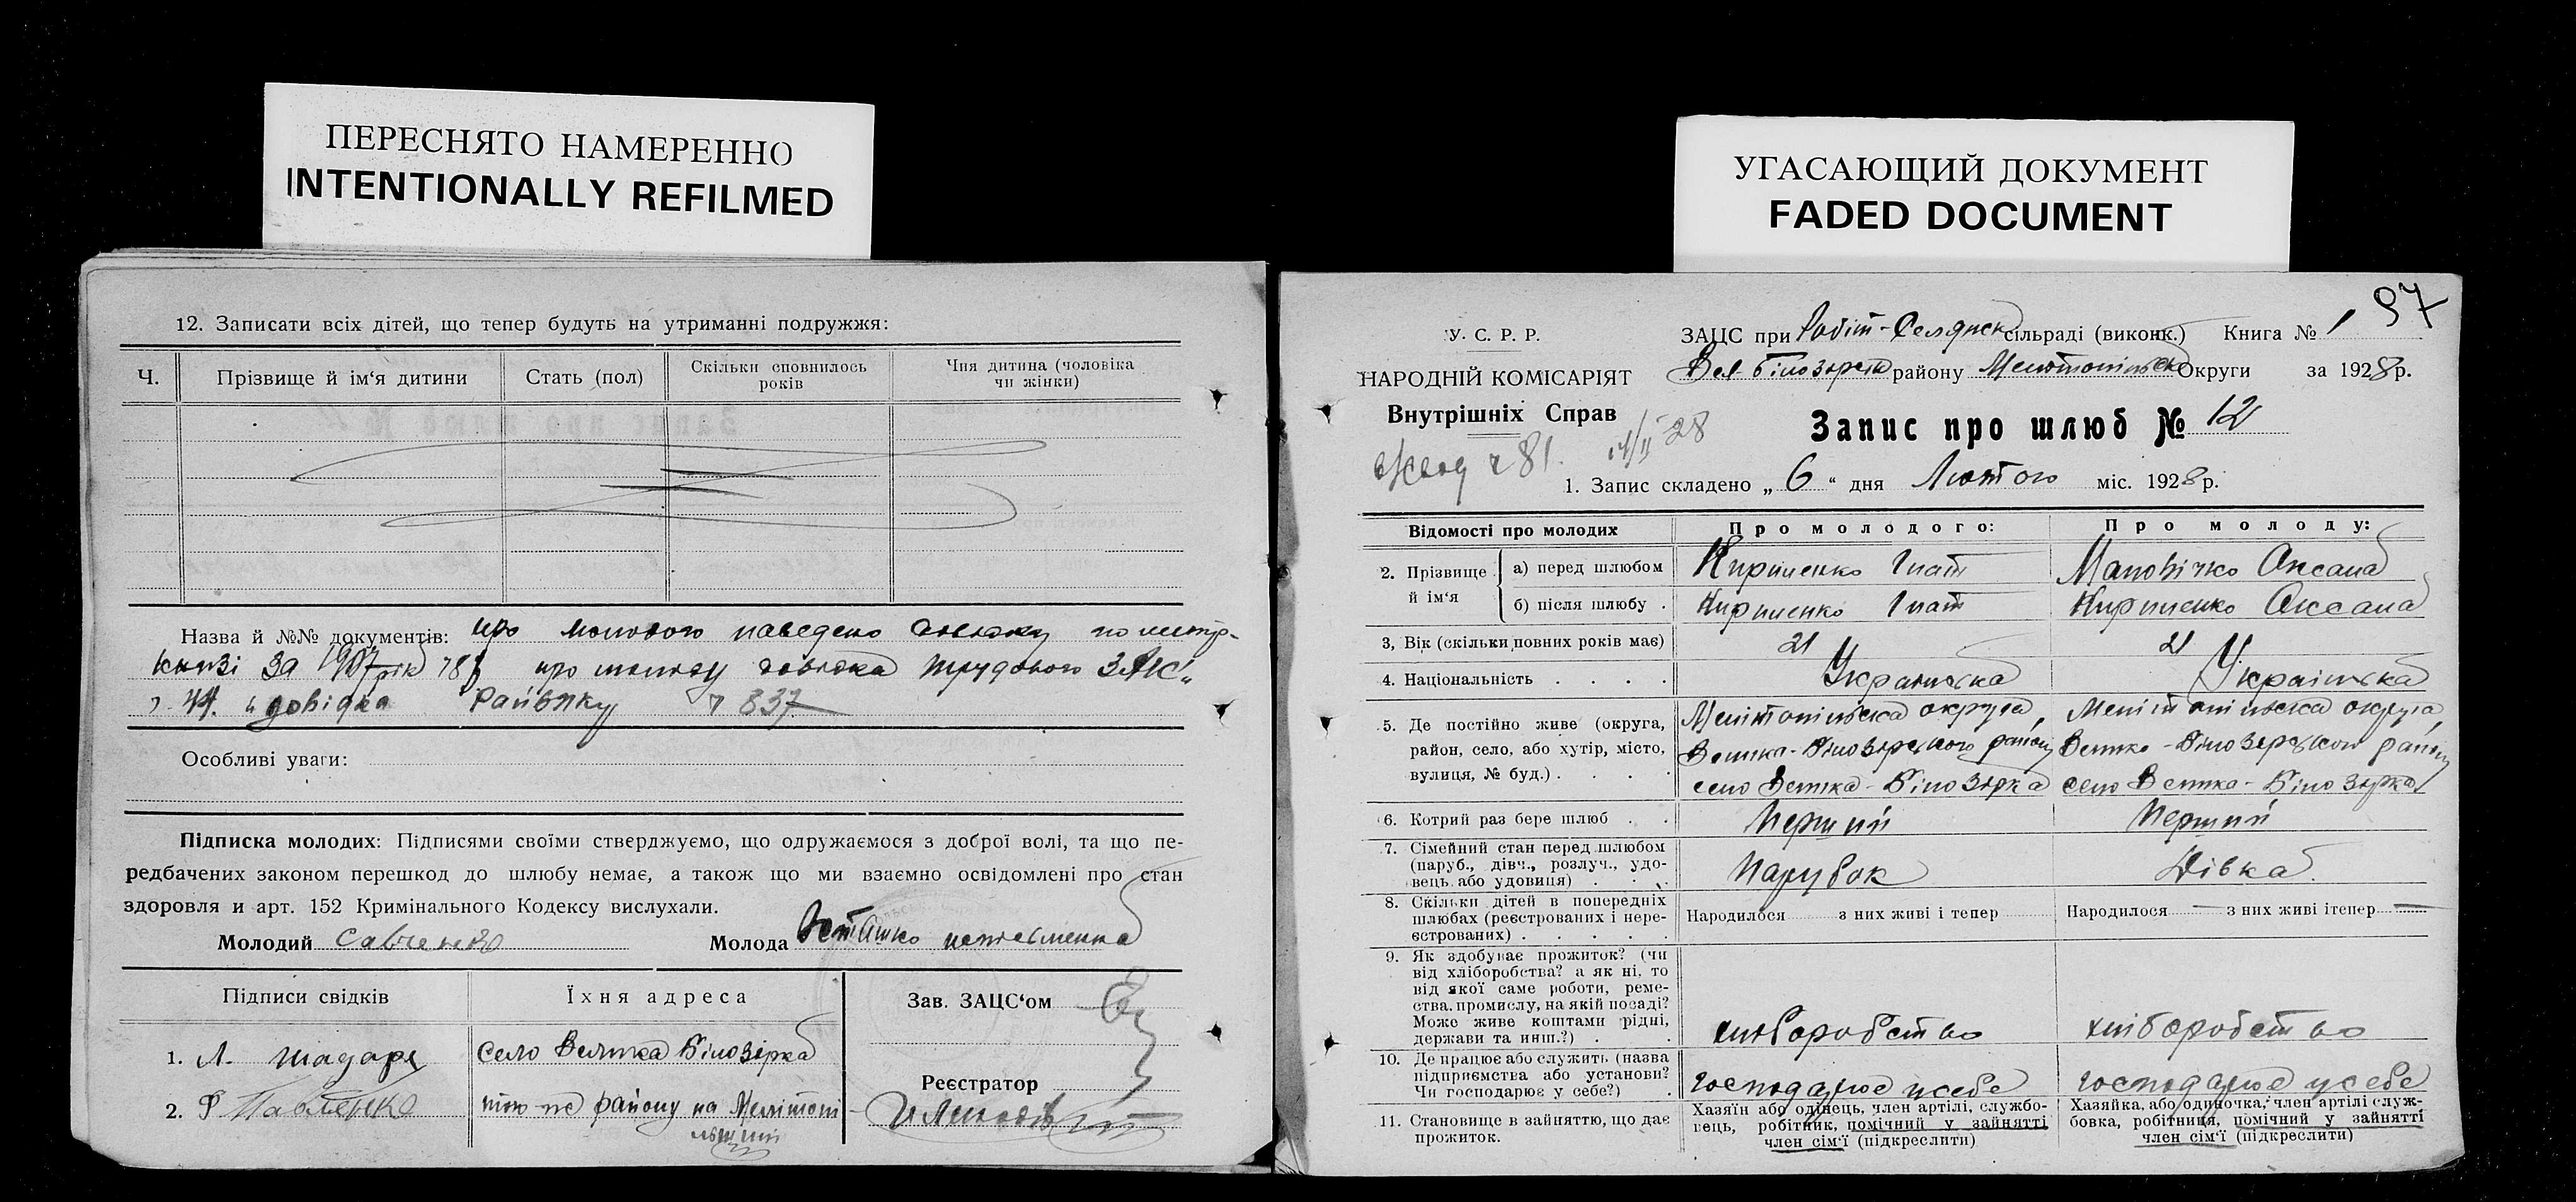 ПЕРЕСНЯТО НАМЕРЕННО
INTENTIONALLY REFILMED
УГАСАЮЩИЙ ДОКУМЕНТ
FADED DOCUMENT
12. Записати всіх дітей, що тепер будуть на утриманні подружжя:
Ч. Прізвище й ім‘я дитини Стать (пол) Скільки сповнилось років Чия дитина (чоловіка чи жінки)
Назва й №№ документів: про молодого наведено довідку по метр.
книзі за 1907 рік про молоду довідка трудового ЗАГС"
ч. 44. и довідка Райвику ч 837
Особливі уваги:
Підписка молодих: Підписями своїми стверджуємо, що одружаємося з доброї волі, та що пе-
редбачених законом перешкод до шлюбу немає, а також що ми взаємно освідомлені про стан
здоровля и арт. 152 Кримінального Кодексу вислухали.
Молодий Савченко Молода Осташко неписьменна
Підписи свідків Їхня адреса Зав. ЗАЦС‘ом
1. Л. село Велика Білозірка
Реєстратор
2. Ф Павленко того же району на Мелітопі-
льщині
97
У. С. Р. Р. ЗАЦС при Робіт-Селянск сільраді (виконк.) Книга № 1
НАРОДНІЙ КОМІСАРІЯТ Вел-Білозірск району Мелітопільск Округи за 1928р.
Внутрішніх Справ Запис про шлюб № 12
ч 81. 28
1. Запис складено „ 6 “ дня Лютого міс. 1928р.
Відомості про молодих Про молодого: Про молоду:
2. Прізвище й ім‘я
а) перед шлюбом Кириленко Гнат Маловічко Оксана
б) після шлюбу . Кириленко Гнат Кириленко Оксана
3, Вік (скільки повних років має) 21 21
4. Національність . . . . Українська Українська
5. Де постійно живе (округа, Мелітопільска округа, Мелітопільска округа,
район, село, або хутір, місто, Велика-Білозерского району Велико-Білозерского району
вулиця, № буд.) . . . . село Велика-Білозірка село Велика-Білозірка
6. Котрий раз бере шлюб . . Перший Перший
7. Сімейний стан перед шлюбом
(паруб., дівч., розлуч., удо- Парубок Дівка
вець або удовиця) . . .
8. Скільки дітей в попередніх
шлюбах (реєстрованих і нере- Народилося з них живі і тепер Народилося — з них живі ітепер —
єстрованих) . . . . .
9. Як здобуває прожиток? (чи
від хліборобства? а як ні, то
від якої саме роботи, реме-
ства, промислу, на якій посаді?
Може живе коштами рідні, хліборобство хліборобство
держави та инш.?) . .
10. Де працює або служить (назва
підприємства або установи? господарює у себе господарює у себе
Чи господарює у себе?) .
11. Становище в зайняттю, що дає
прожиток.
Хазяїн або одінець, член артілі, службо-
вець, робітник, помічний у зайнятті
член сім‘ї (підкреслити)
Хазяйка, або одиночка, член артілі служ-
бовка, робітниця, помічний у зайнятті
член сім‘ї (підкреслити)